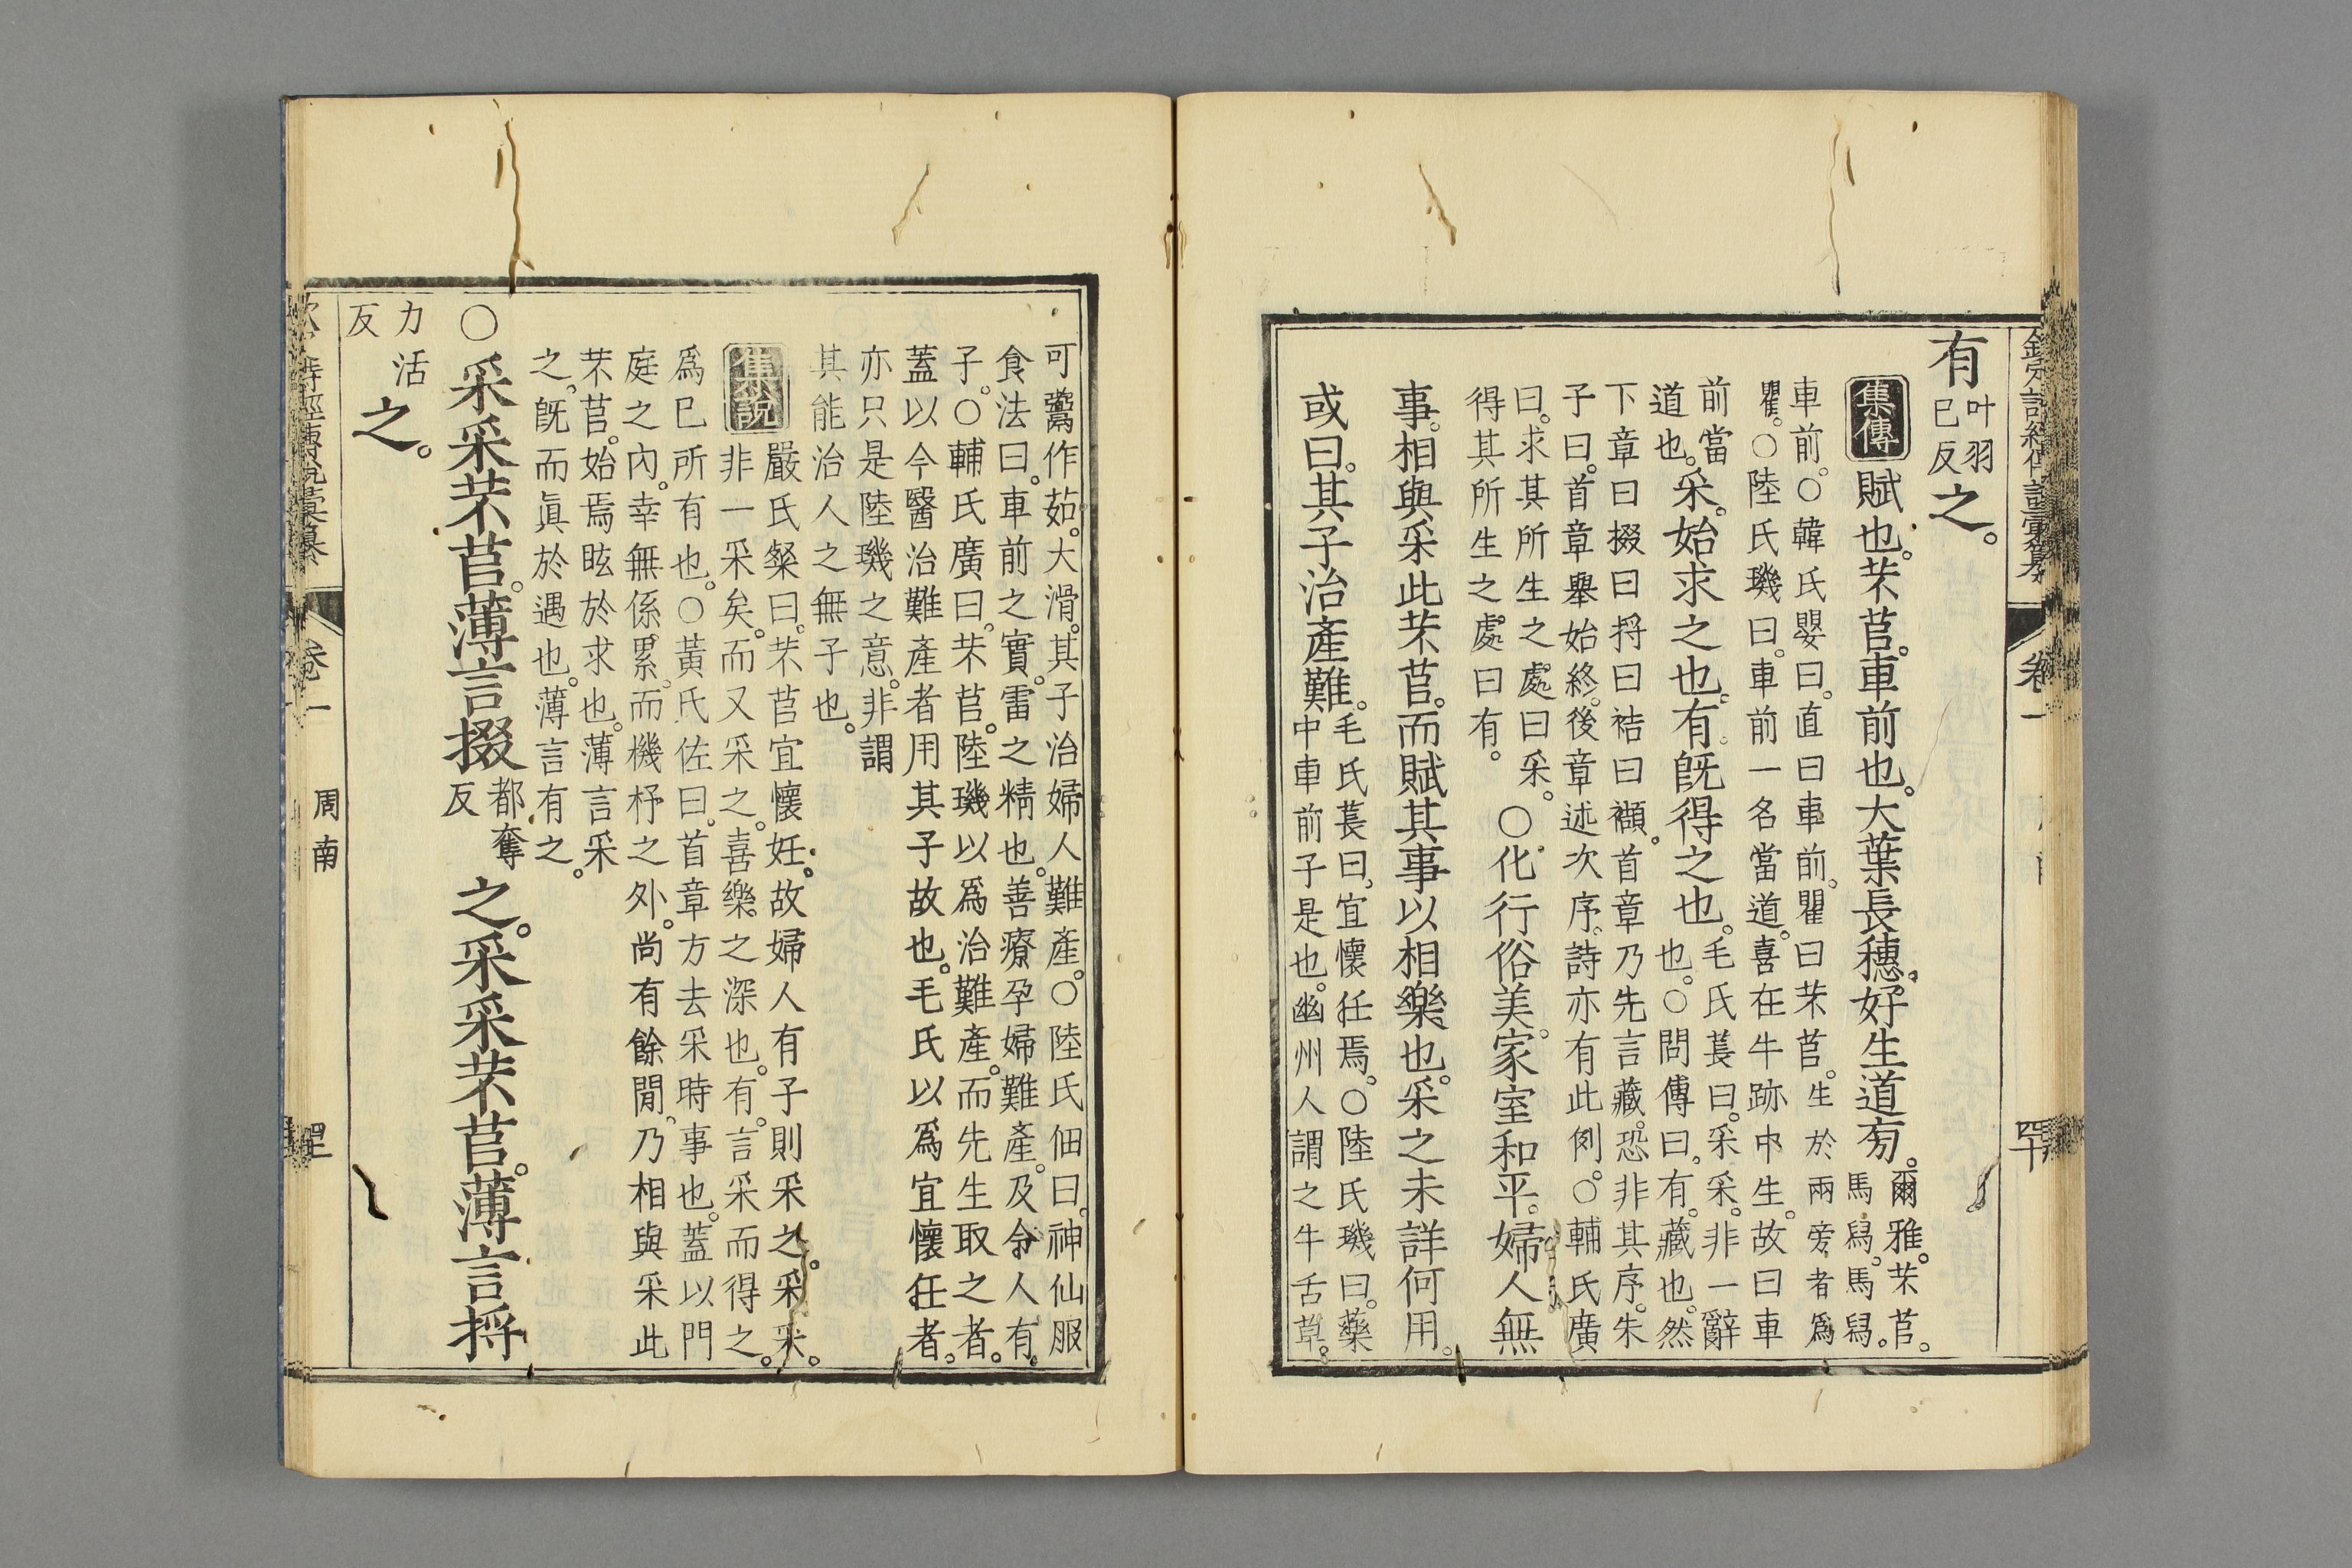 欽定詩經傳說彙纂 卷一 四十
有叶羽已反之。
集傳 賦也。芣苢。車前也。大葉長穗。好生道旁。爾雅。芣苢。馬舄。馬舄。
車前。○韓氏嬰曰。直曰車前。瞿曰芣苢。生於兩旁者爲
瞿。○陸氏璣曰。車前一名當道。喜在牛跡中生。故曰車
前當道也。采。始求之也。有。既得之也。毛氏萇曰。采采。非一辭也。○問傳曰。有。藏也。然
下章曰掇曰捋曰袺曰襭。首章乃先言藏。恐非其序。朱
子曰。首章舉始終。後章述次序。詩亦有此例。○輔氏廣
曰。求其所生之處曰采。得其所生之處曰有。○化行俗美。家室和平。婦人無
事。相與采此芣苢。而賦其事以相樂也。采之未詳何用。
或曰。其子治產難。毛氏萇曰。宜懷任焉。○陸氏璣曰。藥中車前子是也。幽州人謂之牛舌草。
可鬻作茹。大滑。其子治婦人難產。○陸氏佃曰。神仙服
食法曰。車前之實。雷之精也。善療孕婦難產。及令人有
子。○輔氏廣曰。芣苢。陸璣以爲治難產。而先生取之者。
蓋以今醫治難產者用其子故也。毛氏以爲宜懷任者。
亦只是陸璣之意。非謂
其能治人之無子也。
集說 嚴氏粲曰。芣苢宜懷妊。故婦人有子則采之。采采。
非一采矣。而又采之。喜樂之深也。有。言采而得之。
爲已所有也。○黃氏佐曰。首章方去采時事也。蓋以門
庭之內。幸無係累。而機杼之外。尚有餘閒。乃相與采此
芣苢。始焉眩於求也。薄言采
之。既而眞於遇也。薄言有之。
○采采芣苢。薄言掇都奪反之。采采芣苢。薄言捋
力活反之。
欽定詩經傳說彙纂 卷一 周南